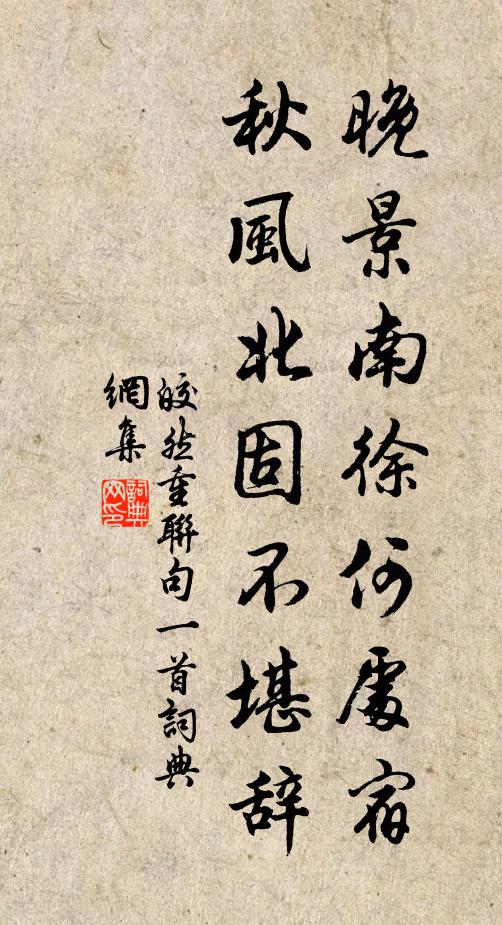 晚景南徐何處宿
秋風北固不堪辞
皎然重聯句一首詞典
網集
詞典
网印